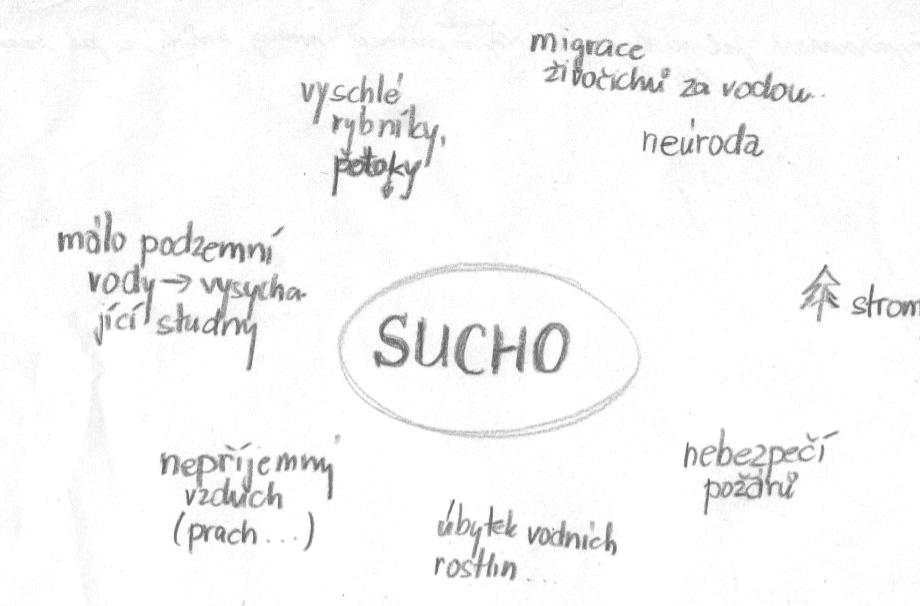 migrace
živočichů za vodou...
neúroda
vyschlé
rybníky,
potoky
málo podzemní
vody → vysycha-
jící studny
SUCHO
strom
nepříjemný
vzduch
(prach...)
nebezpečí
požárů
úbytek vodních
rostlin...